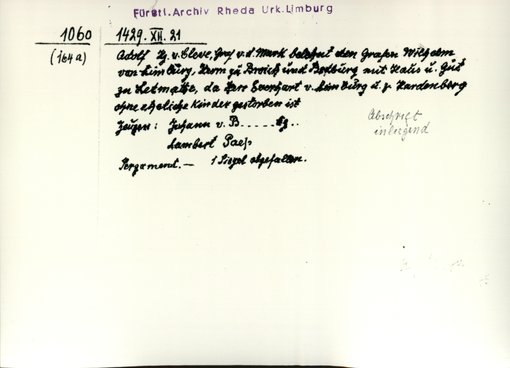 Fürstl. Archiv Rheda Urk. Limburg
1060 1429. XII. 21
(164a)
Adolf Hg. v. Cleve, Graf v. d. Mark belehnt den Grafen Wilhelm
von Limburg, Herrn zu Broich und Bedburg mit Haus u. Gut
zu Letmathe, da Herr Everhart v. Limburg u. z. Hardenberg
ohne eheliche Kinder gestorben ist
Zeugen: Johann v. B.....
Lambert Paes
Pergament. — 1 Siegel abgefallen.
Abschrift
inliegend